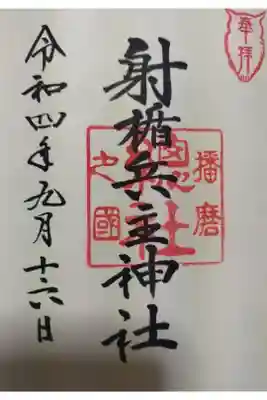 奉拝
射楯兵主神社
播磨
之國
總社
令和四年九月十六日